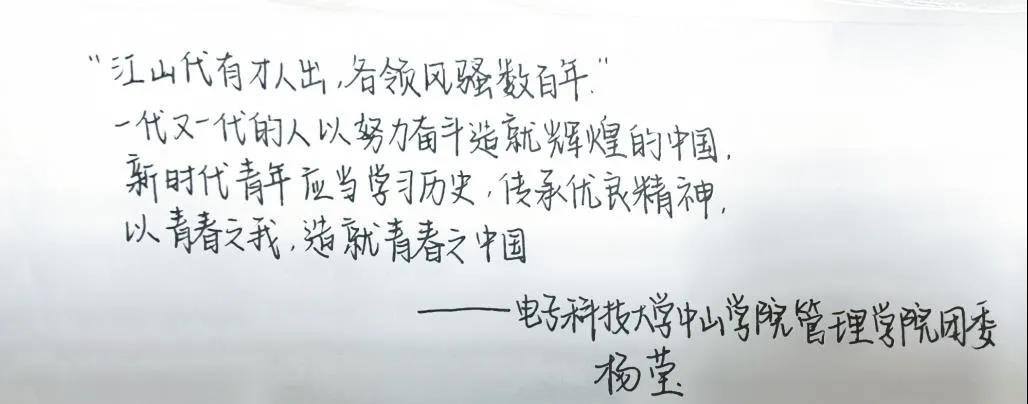 “江山代有才人出,各领风骚数百年.”
一代又一代的人以努力奋斗造就辉煌的中国,
新时代青年应当学习历史,传承优良精神,
以青春之我,造就青春之中国
——电子科技大学中山学院管理学院团委
杨莹